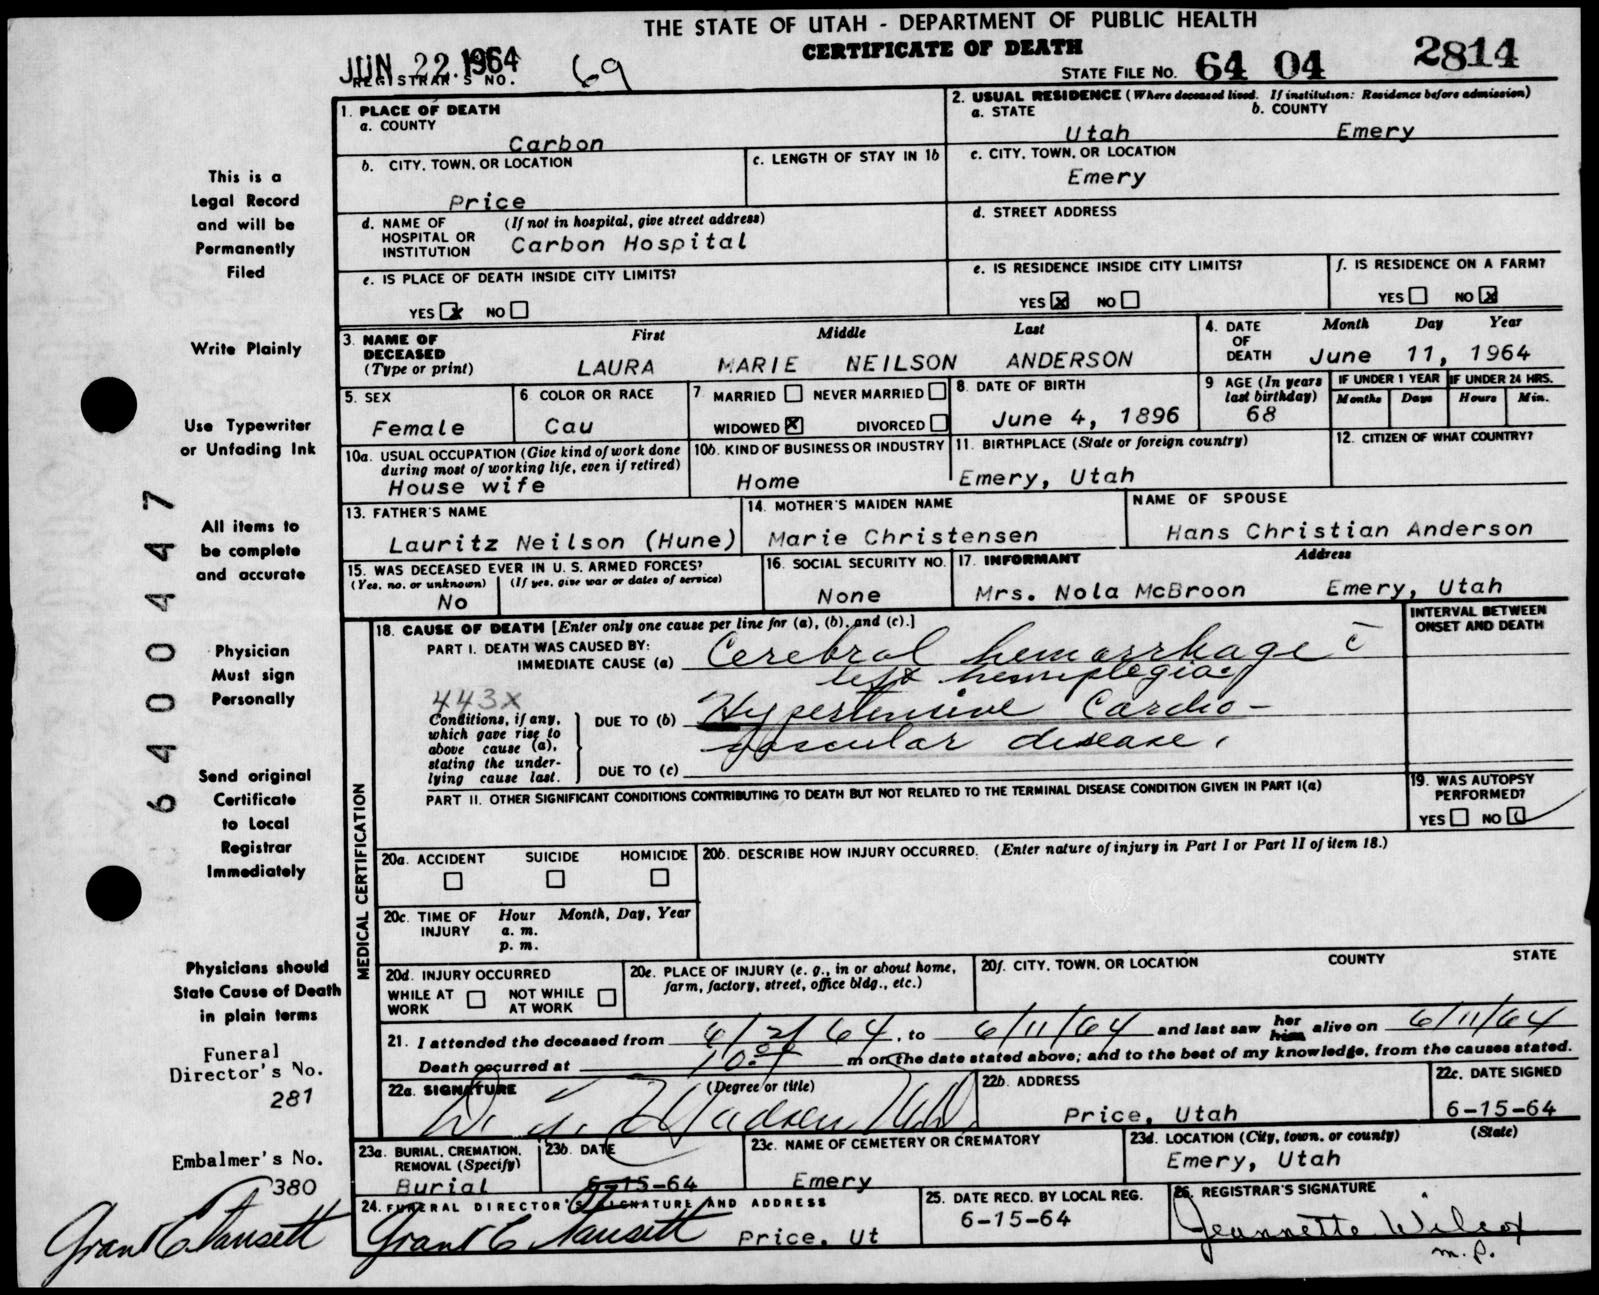 THE STATE OF UTAH - DEPARTMENT OF PUBLIC HEALTH
CERTIFICATE OF DEATH
JUN 22.1964
REGISTRAR'S NO. 69
STATE FILE NO. 64 04 2814
This is a
Legal Record
and will be
Permanently
Filed
Write Plainly
Use Typewriter
or Unfading Ink
All items to
be complete
and accurate
Physician
Must sign
Personally
Send original
Certificate
to Local
Registrar
Immediately
Physicians should
State Cause of Death
in plain terms
Funeral
Director's No.
281
Embalmer's No.
380
64004447
1. PLACE OF DEATH
a. COUNTY
Carbon
2. USUAL RESIDENCE (Where deceased lived. If institution: Residence before admission)
a. STATE b. COUNTY
Utah Emery
b. CITY, TOWN, OR LOCATION
Price
c. LENGTH OF STAY IN 1b
c. CITY, TOWN, OR LOCATION
Emery
d. NAME OF (If not in hospital, give street address)
HOSPITAL OR
INSTITUTION Carbon Hospital
d. STREET ADDRESS
e. IS PLACE OF DEATH INSIDE CITY LIMITS?
YES x NO
e. IS RESIDENCE INSIDE CITY LIMITS?
YES x NO
f. IS RESIDENCE ON A FARM?
YES NO x
3. NAME OF First Middle Last
DECEASED
(Type or print) LAURA MARIE NEILSON ANDERSON
4. DATE Month Day Year
OF
DEATH June 11, 1964
5. SEX
Female
6 COLOR OR RACE
Cau
7. MARRIED NEVER MARRIED
WIDOWED x DIVORCED
8. DATE OF BIRTH
June 4, 1896
9 AGE (In years
last birthday)
68
IF UNDER 1 YEAR IF UNDER 24 HRS.
Months Days Hours Min.
10a. USUAL OCCUPATION (Give kind of work done
during most of working life, even if retired)
House wife
10b. KIND OF BUSINESS OR INDUSTRY
Home
11. BIRTHPLACE (State or foreign country)
Emery, Utah
12. CITIZEN OF WHAT COUNTRY?
13. FATHER'S NAME
Lauritz Neilson (Hune)
14. MOTHER'S MAIDEN NAME
Marie Christensen
NAME OF SPOUSE
Hans Christian Anderson
15. WAS DECEASED EVER IN U. S. ARMED FORCES?
(Yes, no, or unknown) (If yes, give war or dates of service)
No
16. SOCIAL SECURITY NO.
None
17. INFORMANT Address
Mrs. Nola McBroon Emery, Utah
MEDICAL CERTIFICATION
18. CAUSE OF DEATH [Enter only one cause per line for (a), (b), and (c).]
INTERVAL BETWEEN
ONSET AND DEATH
PART I. DEATH WAS CAUSED BY:
IMMEDIATE CAUSE (a) Cerebral hemorrhage c̄
left hemiplegia
443X
Conditions, if any,
which gave rise to
above cause (a),
stating the under-
lying cause last.
DUE TO (b) Hypertensive Cardio-
vascular disease.
DUE TO (c)
PART II. OTHER SIGNIFICANT CONDITIONS CONTRIBUTING TO DEATH BUT NOT RELATED TO THE TERMINAL DISEASE CONDITION GIVEN IN PART I(a)
19. WAS AUTOPSY
PERFORMED?
YES NO
20a. ACCIDENT SUICIDE HOMICIDE
20b. DESCRIBE HOW INJURY OCCURRED. (Enter nature of injury in Part I or Part II of item 18.)
20c. TIME OF Hour Month, Day, Year
INJURY a. m.
p. m.
20d. INJURY OCCURRED
WHILE AT NOT WHILE
WORK AT WORK
20e. PLACE OF INJURY (e. g., in or about home,
farm, factory, street, office bldg., etc.)
20f. CITY, TOWN, OR LOCATION COUNTY STATE
21. I attended the deceased from 6/2/64, to 6/11/64 and last saw her him alive on 6/11/64
Death occurred at 10:00 m on the date stated above; and to the best of my knowledge, from the causes stated.
22a. SIGNATURE (Degree or title)
Madsen MD
22b. ADDRESS
Price, Utah
22c. DATE SIGNED
6-15-64
23a. BURIAL, CREMATION,
REMOVAL (Specify)
Burial
23b. DATE
6-15-64
23c. NAME OF CEMETERY OR CREMATORY
Emery
23d. LOCATION (City, town, or county) (State)
Emery, Utah
24. FUNERAL DIRECTOR'S SIGNATURE AND ADDRESS
Grant C Fausett Price, Ut
25. DATE RECD. BY LOCAL REG.
6-15-64
26. REGISTRAR'S SIGNATURE
Jeannette Wilcox
m.p.
Grant C Fausett